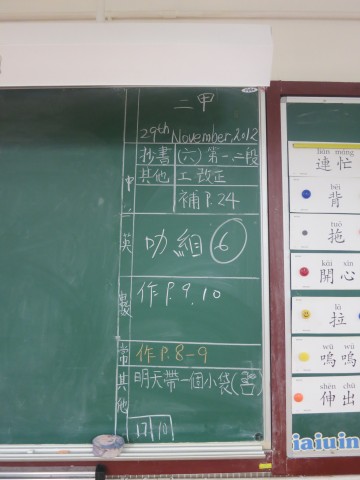 二甲
29th November, 2012
抄書 (六) 第一、二段
其他 工 改正
補 P.24
中
英
叻組 6
數
作 P.9, 10
常
作 P.8-9
其他
明天帶一個小袋(書)
17 10
lián máng
連忙
bēi
背
tuō
拖
kāi xīn
開心
lā
拉
wū wū
嗚嗚
shēn chū
伸出
iaiuin